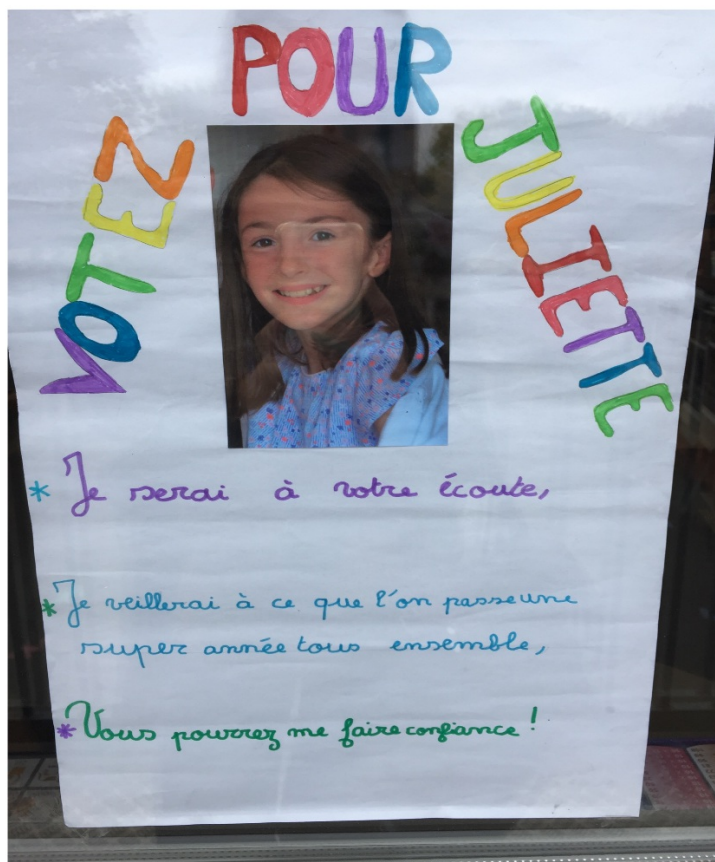 VOTEZ POUR JULIETTE
* Je serai à votre écoute,
* Je veillerai à ce que l'on passe une
super année tous ensemble,
* Vous pourrez me faire confiance !